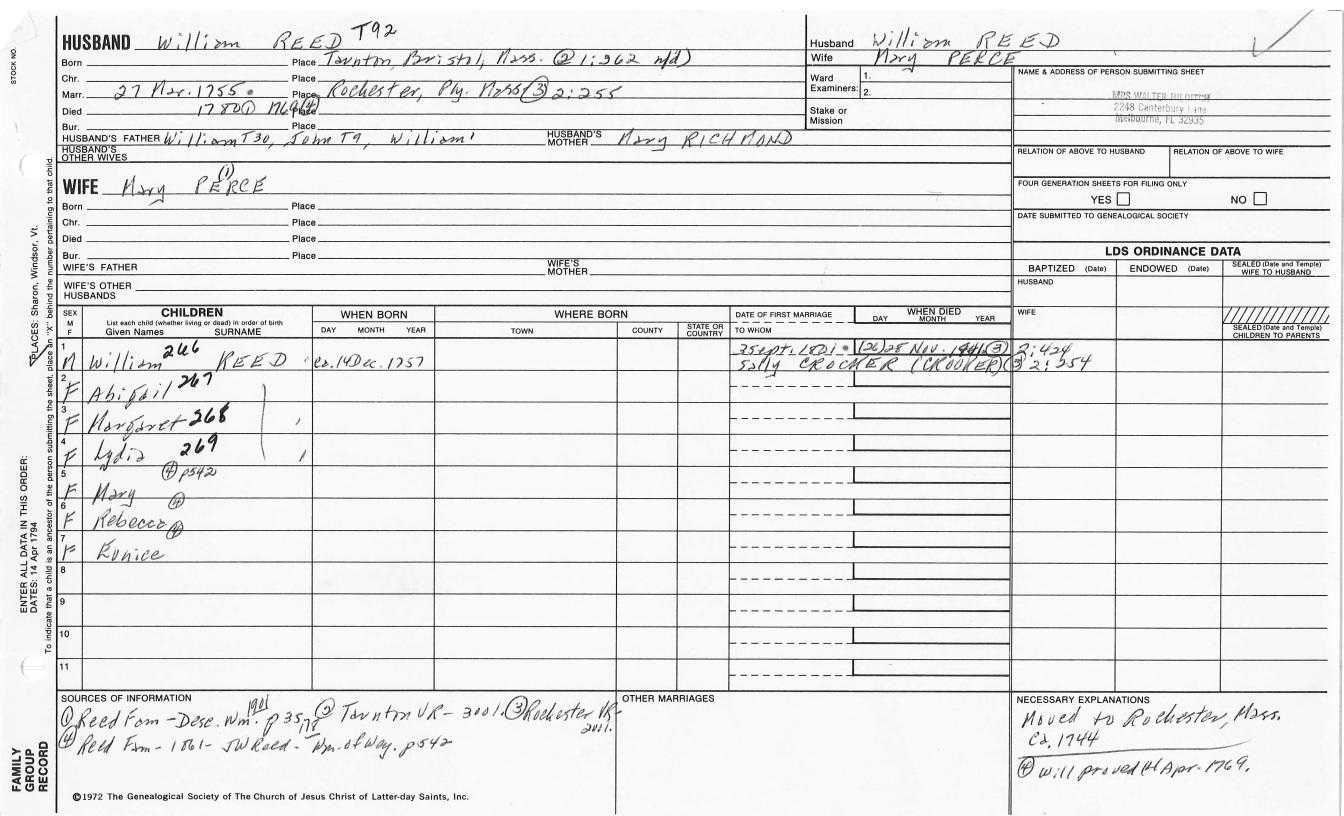 STOCK NO.
HUSBAND William REED T92
Born Place Taunton, Bristol, Mass. (2) 1:362 n/d)
Chr. Place
Marr. 27 Mar. 1755 Place Rochester, Ply. Mass (3) 2:255
Died 1780 (1) 1769 (4) Place
Bur. Place
HUSBAND'S FATHER William T30, John T9, William' HUSBAND'S MOTHER Mary RICHMOND
HUSBAND'S OTHER WIVES
Husband William REED
Wife Mary PERCE
Ward Examiners: 1.
2.
Stake or Mission
NAME & ADDRESS OF PERSON SUBMITTING SHEET
MRS WALTER
2248 Canterbury Lane
Melbourne, FL 32935
RELATION OF ABOVE TO HUSBAND RELATION OF ABOVE TO WIFE
FOUR GENERATION SHEETS FOR FILING ONLY
YES NO
DATE SUBMITTED TO GENEALOGICAL SOCIETY
WIFE Mary PERCE (1)
Born Place
Chr. Place
Died Place
Bur. Place
WIFE'S FATHER WIFE'S MOTHER
WIFE'S OTHER HUSBANDS
LDS ORDINANCE DATA
BAPTIZED (Date) ENDOWED (Date) SEALED (Date and Temple) WIFE TO HUSBAND
HUSBAND
WIFE
SEALED (Date and Temple) CHILDREN TO PARENTS
SEX M F
CHILDREN
List each child (whether living or dead) in order of birth
Given Names SURNAME
WHEN BORN
DAY MONTH YEAR
WHERE BORN
TOWN COUNTY STATE OR COUNTRY
DATE OF FIRST MARRIAGE
TO WHOM
WHEN DIED
DAY MONTH YEAR
1 M William 266 REED Ca. 14 Dec. 1757 3 Sept. 1801 (26) 28 Nov. (3) 2:424
Sally CROCKER (CROOKER) (3) 2:254
2 F Abigail 267
3 F Margaret 268
4 F Lydia 269
5 F Mary (4) p542
6 F Rebecca (4)
7 F Eunice (4)
8
9
10
11
SOURCES OF INFORMATION
(1) Reed Fam - Desc. Wm. 1901 p 35, 78 (2) Taunton VR - 3001. (3) Rochester VR - 2001.
(4) Reed Fam - 1861 - JW Reed - Wm. of Way. p542
OTHER MARRIAGES
NECESSARY EXPLANATIONS
Moved to Rochester, Mass.
Ca. 1744
(4) Will proved Apr. 1769.
©1972 The Genealogical Society of The Church of Jesus Christ of Latter-day Saints, Inc.
FAMILY GROUP RECORD
ENTER ALL DATA IN THIS ORDER:
DATES: 14 Apr 1794
PLACES: Sharon, Windsor, Vt.
To indicate that a child is an ancestor of the person submitting the sheet, place an "X" behind the number pertaining to that child.